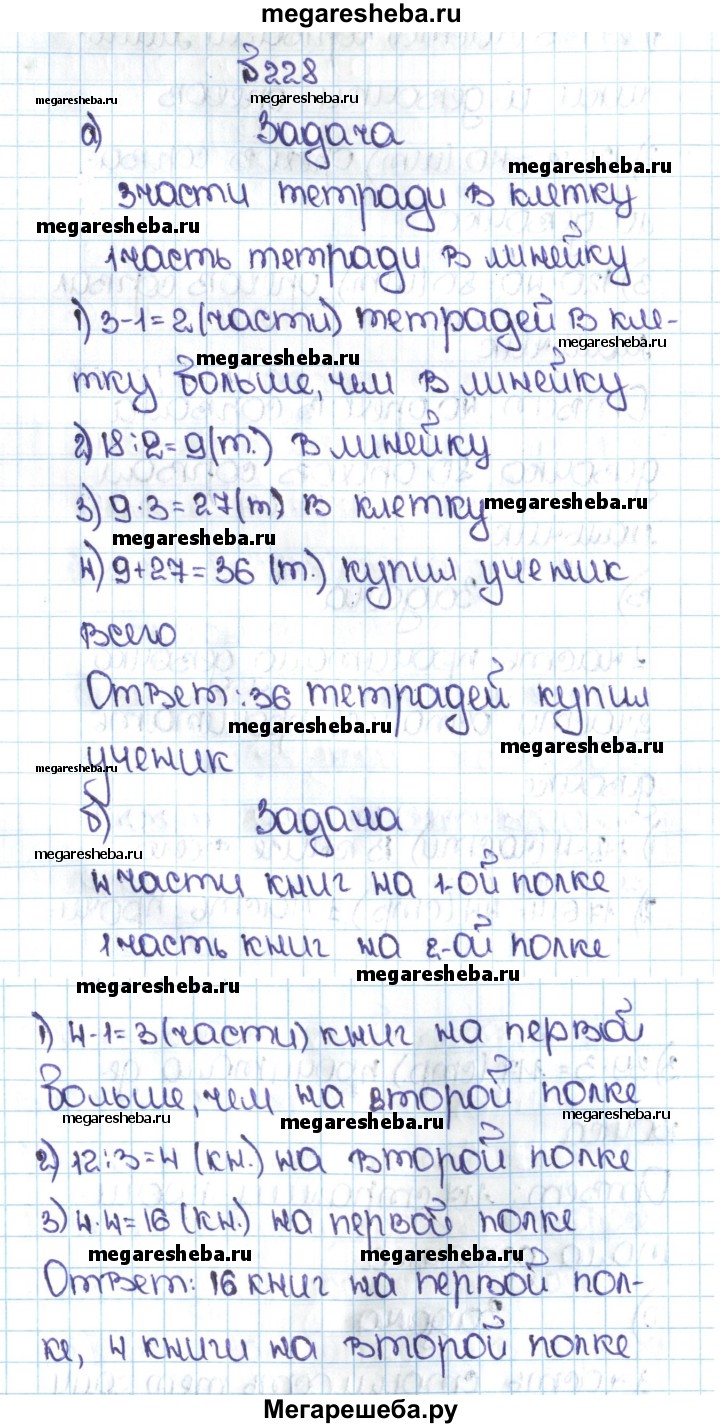 megaresheba.ru
№228
megaresheba.ru megaresheba.ru
а) Задача
megaresheba.ru
3 части тетради в клетку
megaresheba.ru
1 часть тетради в линейку
1) 3-1=2 (части) тетрадей в кле-
megaresheba.ru
megaresheba.ru
тку больше, чем в линейку
2) 18:2=9(т.) в линейку
3) 9·3=27(т) в клетку
megaresheba.ru
megaresheba.ru
4) 9+27=36 (т.) купил ученик
всего
Ответ: 36 тетрадей купил
megaresheba.ru
megaresheba.ru
ученик
megaresheba.ru
б) Задача
megaresheba.ru
4 части книг на 1-ой полке
1 часть книг на 2-ой полке
megaresheba.ru
megaresheba.ru
1) 4-1=3 (части) книг на первой
больше, чем на второй полке
megaresheba.ru megaresheba.ru megaresheba.ru
2) 12:3=4 (кн.) на второй полке
3) 4·4=16 (кн.) на первой полке
megaresheba.ru megaresheba.ru
Ответ: 16 книг на первой пол-
ке, 4 книги на второй полке
Мегарешеба.ру